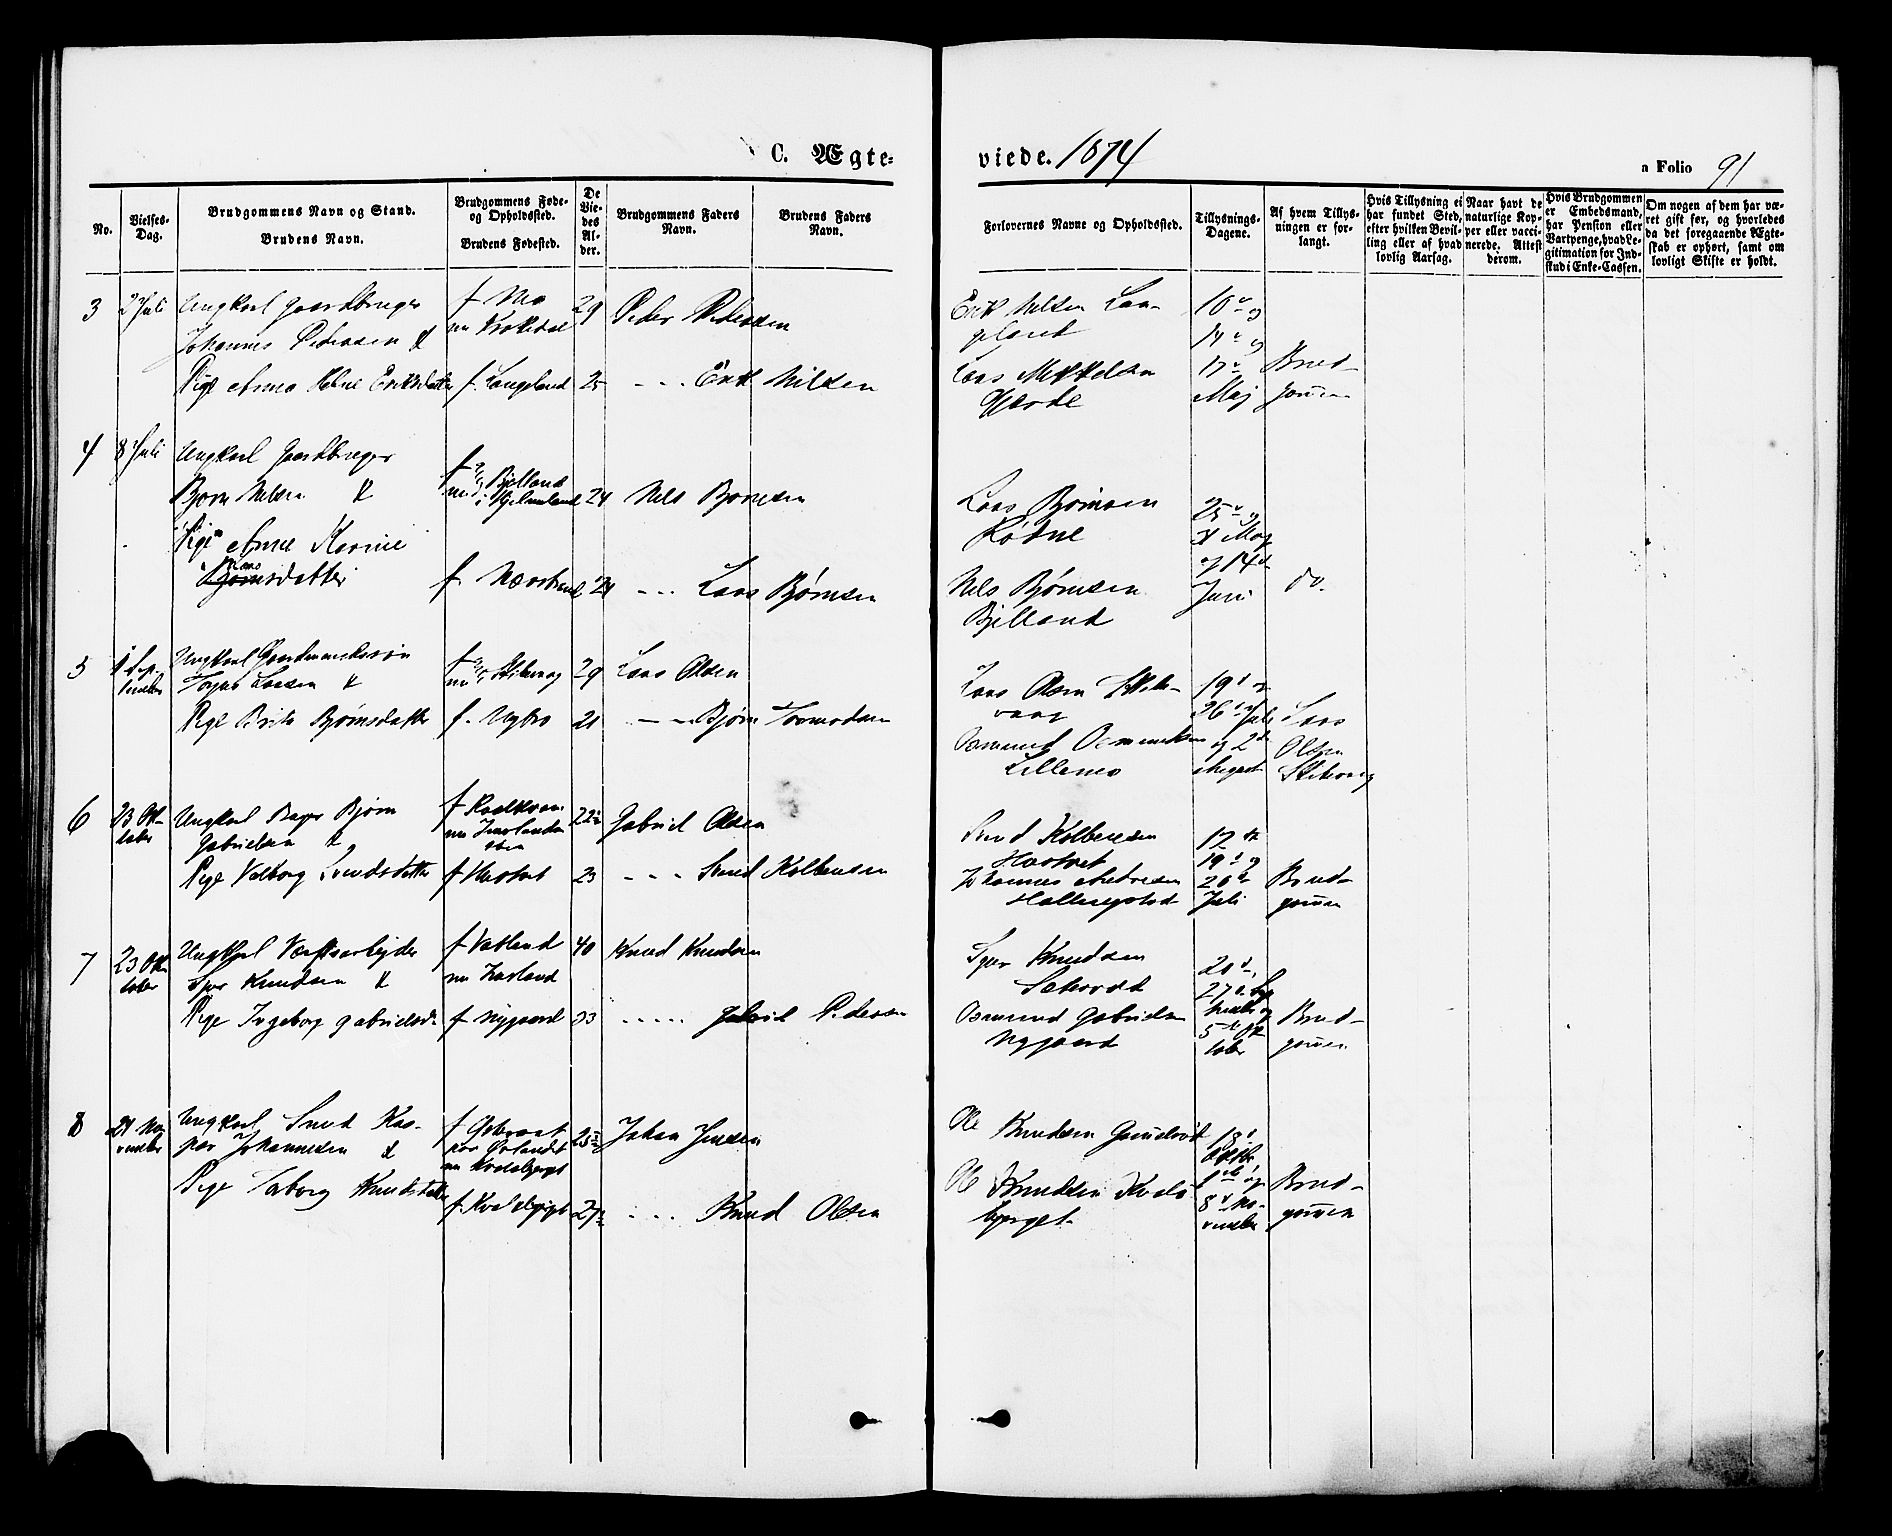 C. Ægte-
viede. 1874
a Folio 91
No.
Vielses-
Dag.
Brudgommens Navn og Stand.
Brudens Navn.
Brudgommens Føde-
og Opholdssted.
Brudens Fødested.
De
Vie-
des
Al-
der.
Brudgommens Faders
Navn.
Brudens Faders
Navn.
Forlovernes Navne og Opholdssted.
Tillysnings-
Dagene.
Af hvem Tillys-
ningen er for-
langt.
Hvis Tillysning ei
har fundet Sted,
efter hvilken Bevil-
ling eller af hvad
lovlig Aarsag.
Naar havt de
naturlige Kop-
per eller vacci-
nerede. Attest
derom.
Hvis Brudgommen
er Embedsmand,
har Pension eller
Vartpenge, hvad Le-
gitimation for Ind-
skud i Enke-Cassen.
Om nogen af dem har væ-
ret gift før, og hvorledes
da det foregaaende Ægte-
skab er ophørt, samt om
lovligt Skifte er holdt.
3
2 Juli
Ungkarl Gaardbruger
Johannes Pedersen &
Pige Anna Eriksdatter
f. Mo
nu
f. Langeland
29
25
Peder Pedersen
Erik Nilsen
Erik Nilsen Lan-
geland
Lars Mikkelsen
Gjerde
10de og
14de og
17de
Maj
Brud-
gommen
4
8 Juli
Ungkarl Gaardbruger
Bjørn Nilsen &
Pige Anne Karine
Lars
Bjørnsdatter
f. og
nu Bjelland
i Hjelmeland
f. Nærstrand
24
24
Nils Bjørnsen
Lars Bjørnsen
Lars Bjørnsen
Rødne
Nils Bjørnsen
Bjelland
25de og
31 Maj
og 14de
Juni
do.
5
1 Sep-
tember
Ungkarl Gaardmandssøn
Larsen &
Pige Brita Bjørnsdatter
f. og
nu
f.
29
21
Lars Olsen
Bjørn Tormodsen
Lars Olsen
vaag
Osmund Osmundsen
Lillemo
19de og
26de Juli
og 2den
August
Lars
Olsen
6
23 Ok-
tober
Ungkarl Bager Bjørn
Gabrielsen &
Pige Valborg Svendsdatter
f.
nu
f. Hastvet
22
23
Gabriel Olsen
Svend Kolbensen
Svend Kolbensen
Hastvet
Johannes Andresen
12te
19de og
26de
Juli
Brud-
gommen
7
23 Ok-
tober
Ungkarl Værftsarbejder
Sjur Knudsen &
Pige Ingeborg Gabrielsd.
f. Vatland
nu
f. Nygaard
40
33
Knud Knudsen
Gabriel Pedersen
Sjur Knudsen
Osmund Gabrielsen
Nygaard
20de,
27de Sep-
tember og
5te Ok-
tober
Brud-
gommen
8
21 No-
vember
Ungkarl Svend Kas-
per Johannesen &
Pige Taborg Knudsdatter
f.
nu
f.
25
27
Johan Jensen
Knud Olsen
Ole Knudsen
Ole Knudsen Kvals-
berget
18de
Oktbr
1ste og
8de No-
vember
Brud-
gommen